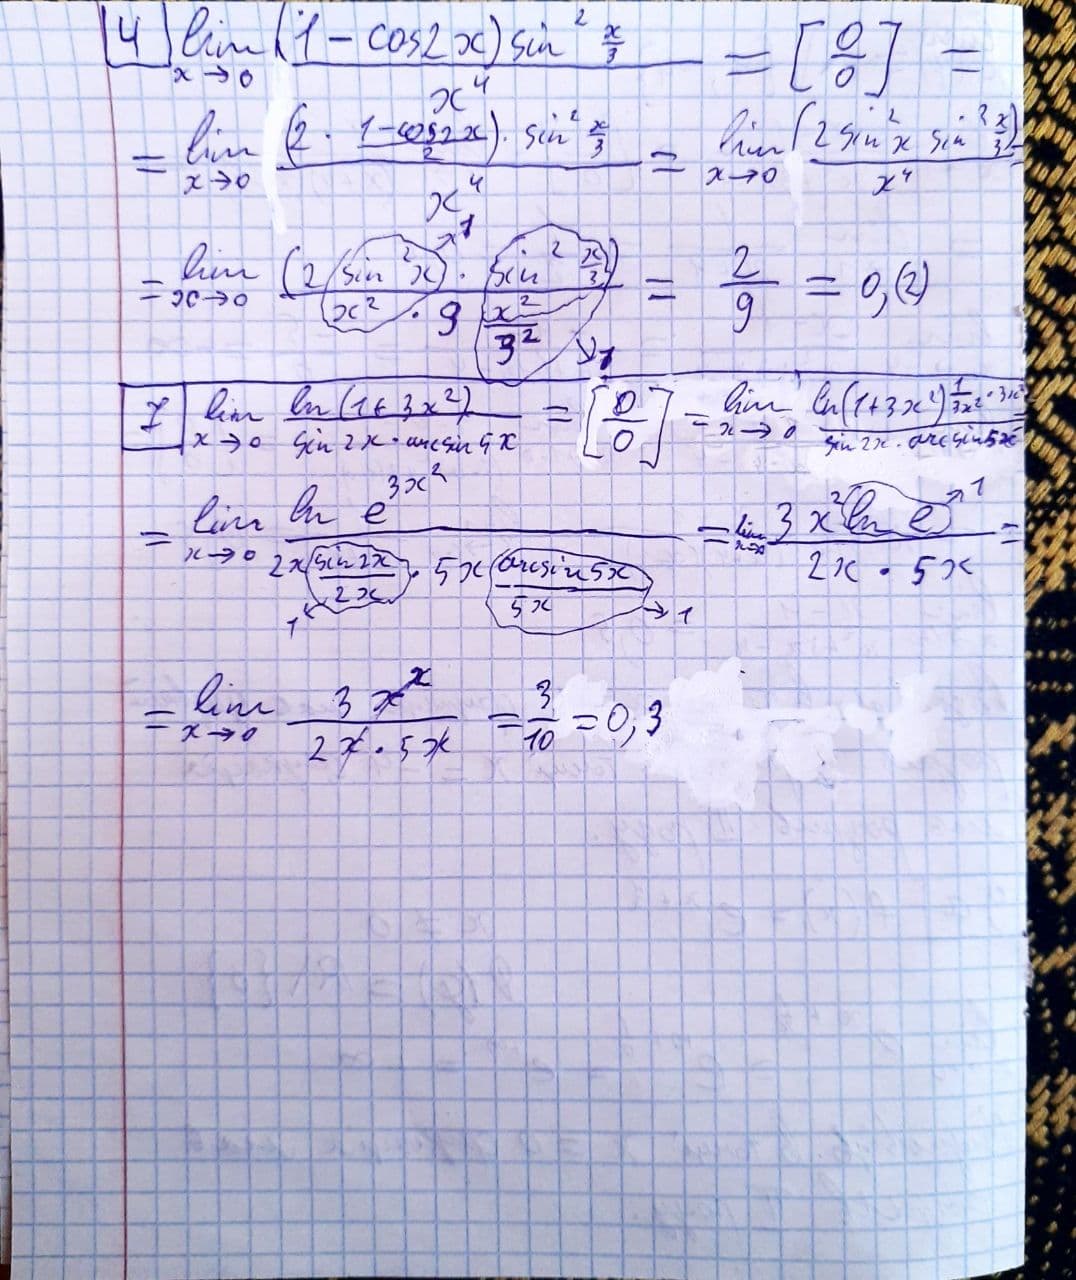 4) lim x→0 (1 - cos2x) sin² x/3 / x⁴ = [0/0] =
= lim x→0 (2 · 1-cos2x/2) · sin² x/3 / x⁴ = lim x→0 (2 sin² x sin² x/3) / x⁴
= lim x→0 (2 sin² x · sin² x/3) / x² · 9 x²/3² = 2/9 = 0,(2)
→1 →1
7 lim x→0 ln(1+3x²) / sin 2x · arcsin 5x = [0/0] = lim x→0 ln(1+3x²)^(1/3x² · 3x²) / sin 2x · arcsin 5x
= lim x→0 ln e^(3x²) / 2x sin 2x/2x · 5x arcsin 5x/5x = lim x→0 3x² ln e / 2x · 5x =
1← →1 →1
= lim x→0 3x^x / 2x · 5x = 3/10 = 0,3